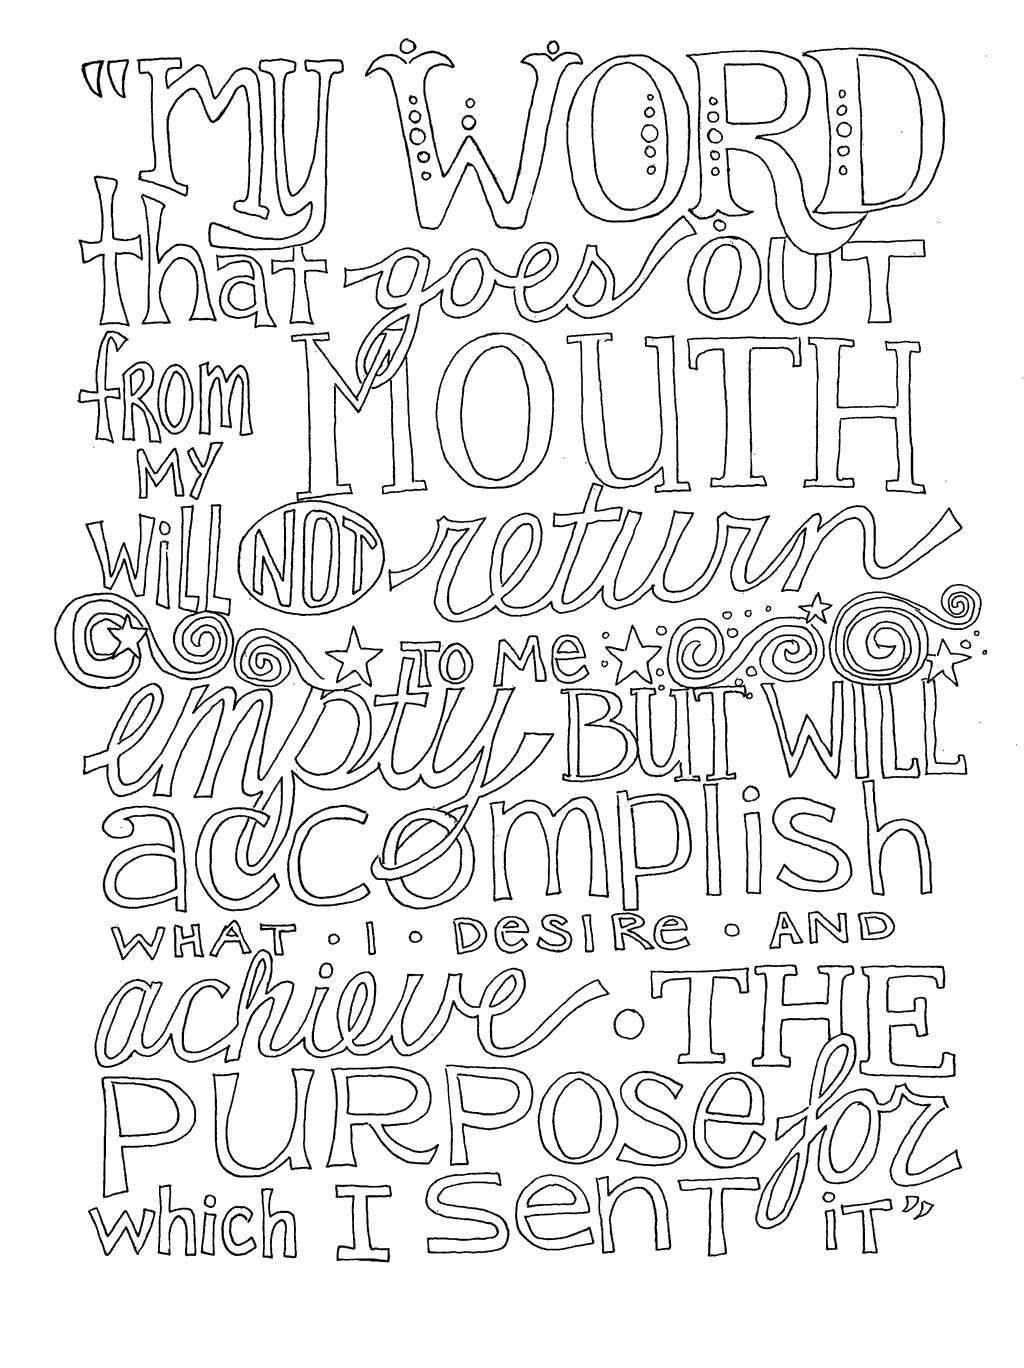 "MY WORD
that goes OUT
from MOUTH
MY
WiLL NOT return
TO Me
empty BUT WILL
accomplish
WHAT · I · DeSIRe · AND
achieve · THE
PURPOSe for
which I SenT iT"